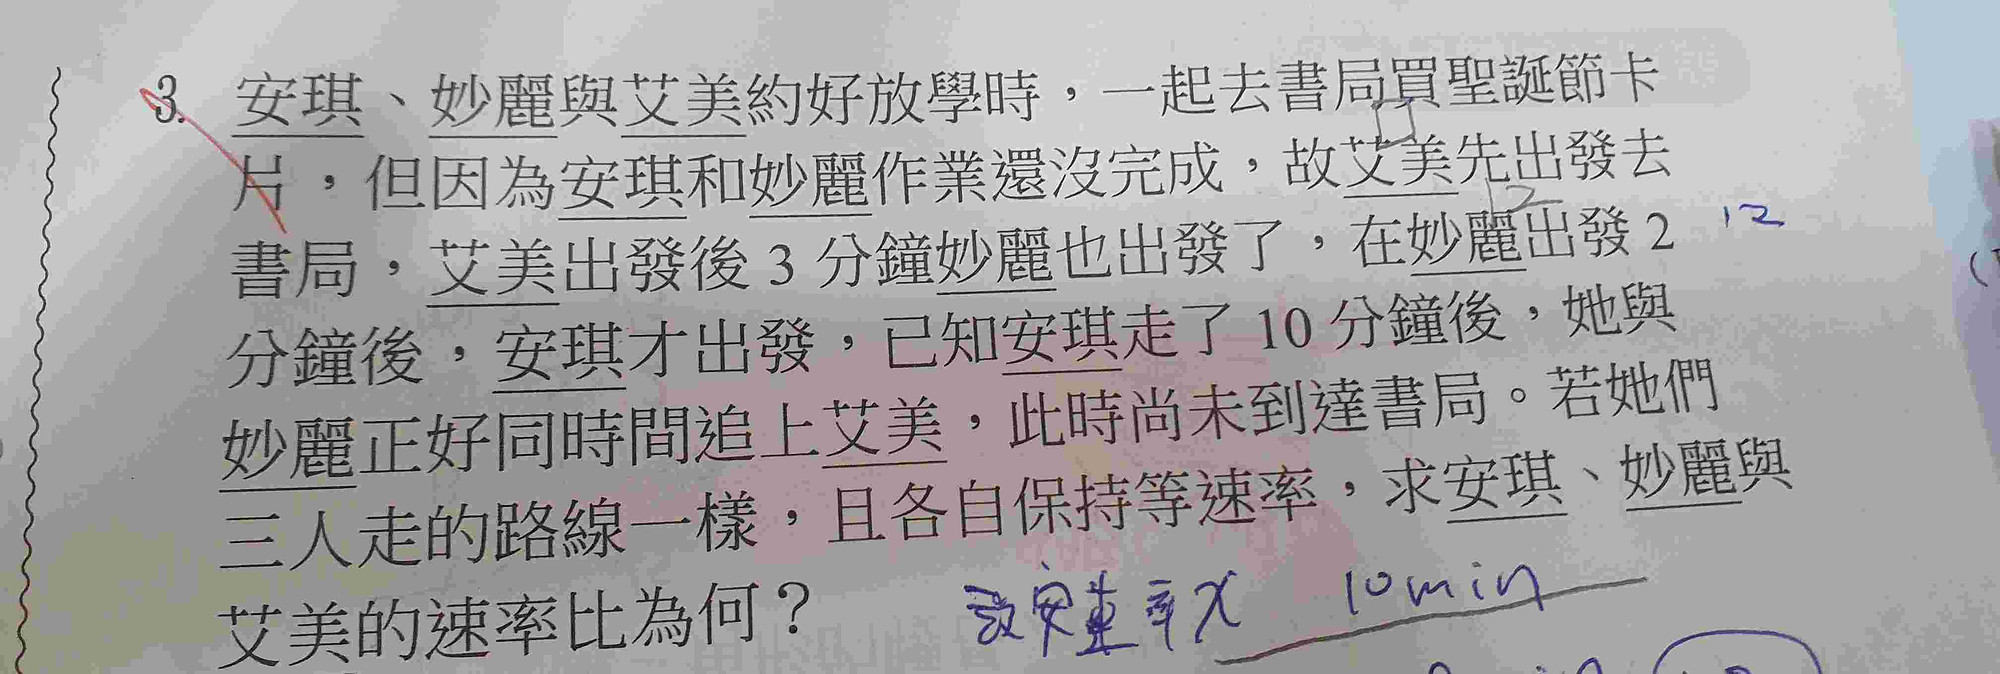 3. 安琪、妙麗與艾美約好放學時，一起去書局買聖誕節卡
片，但因為安琪和妙麗作業還沒完成，故艾美先出發去
12
書局，艾美出發後 3 分鐘妙麗也出發了，在妙麗出發 2 12
分鐘後，安琪才出發，已知安琪走了 10 分鐘後，她與
妙麗正好同時間追上艾美，此時尚未到達書局。若她們
三人走的路線一樣，且各自保持等速率，求安琪、妙麗與
艾美的速率比為何？
設安速率x 10min